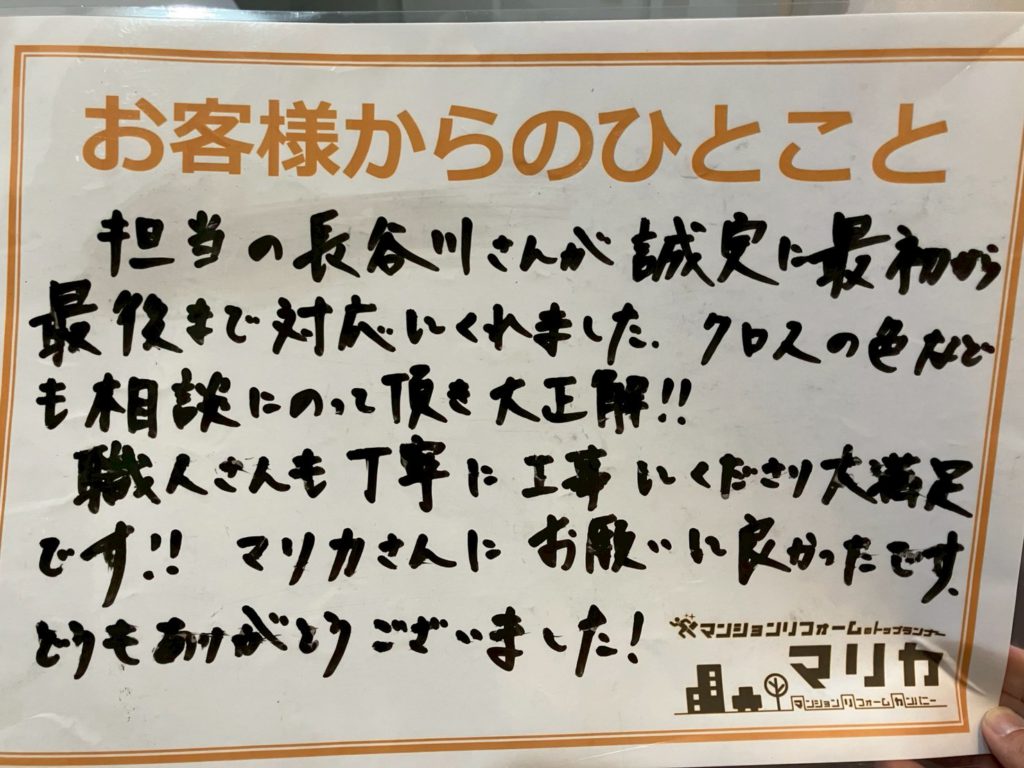 お客様からのひとこと
担当の長谷川さんが誠実に最初から
最後まで対応してくれました。クロスの色など
も相談にのって頂き大正解!!
職人さんも丁寧に工事してくださり大満足
です!! マリカさんにお願いして良かったです。
どうもありがとうございました!
マンションリフォームのトップランナー
マリカ
マンションリフォームカンパニー